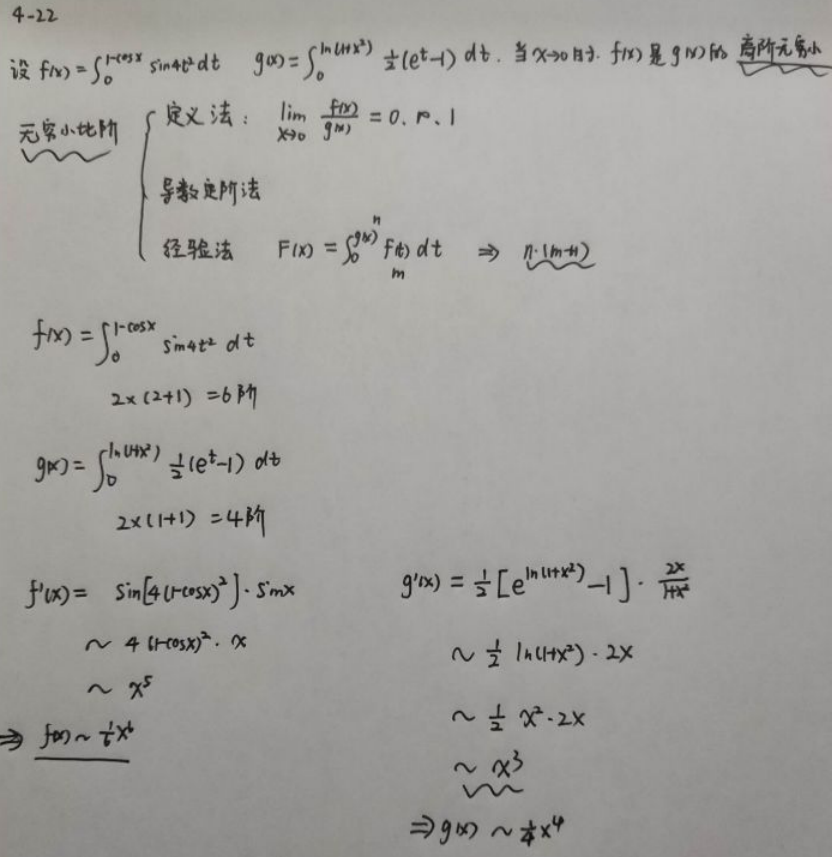 4-22
设 f(x)=∫₀^(1-cosx) sin4t²dt g(x)=∫₀^(ln(1+x²)) ½(eᵗ-1) dt. 当x→0时. f(x)是g(x)的 高阶无穷小
无穷小比阶
定义法: lim x→0 f(x)/g(x) = 0. ∞. 1
导数定阶法
经验法 F(x) = ∫₀^(g(x)) f(t) dt ⇒ n·(m+1)
n
m
f(x) = ∫₀^(1-cosx) sin4t² dt
2×(2+1) =6阶
g(x) = ∫₀^(ln(1+x²)) ½(eᵗ-1) dt
2×(1+1) =4阶
f'(x) = sin[4(1-cosx)²]·sinx
~ 4(1-cosx)²·x
~ x⁵
⇒ f(x) ~ 1/6 x⁶
g'(x) = ½[e^(ln(1+x²)) -1]· 2x/(1+x²)
~ ½ ln(1+x²)·2x
~ ½ x²·2x
~ x³
⇒ g(x) ~ ¼x⁴